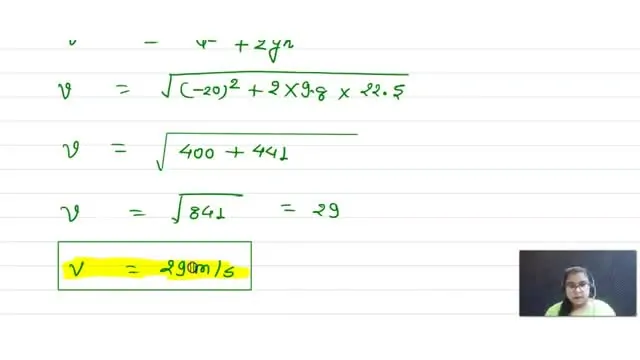 v = √(-20)² + 2 × 9.8 × 22.5
v = √400 + 441
v = √841 = 29
v = 29 m/s